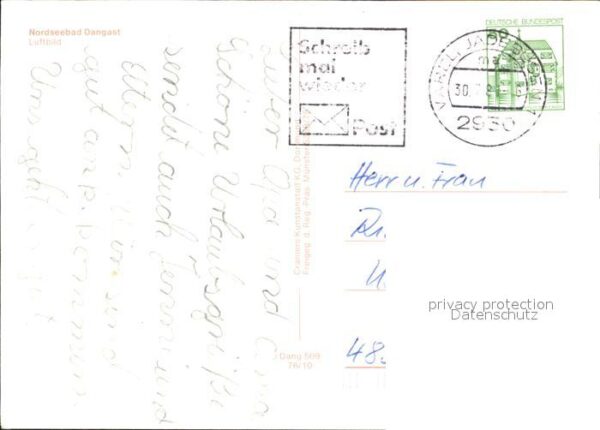 Nordseebad Dangast
Luftbild
Schreib
mal
wieder
Post
DEUTSCHE BUNDESPOST
VAREL, JADEBUSEN 1
30.
2930
Lieber Opa und Oma
Schöne Urlaubsgrüße
sendet auch und
Eltern. Wir sind
gut angekommen
Uns geht gut.
Cramers Kunstanstalt KG, Dortmund
Freigeg. d. Reg. Präs. Münster
Dang 509
76/10
Herrn u. Frau
Dr.
48.
privacy protection
Datenschutz